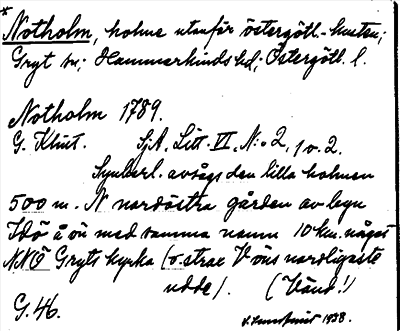 * Notholm, holme utanför östergötl.-kusten;
Gryt sn; Hammarkinds hd; Östergötl. l.
Notholm 1789.
G. Klint. SjA, Litt. VI, N:o 2, 1 o. 2.
Synberl. avsågs den lilla holmen
500 m. N nordöstra gården av byn
Idö å ön med samma namn 10 km. något
NNÖ Gryts kyrka (o. strax V öns nordligaste
udde). (Vänd!)
G. 46.
1938.